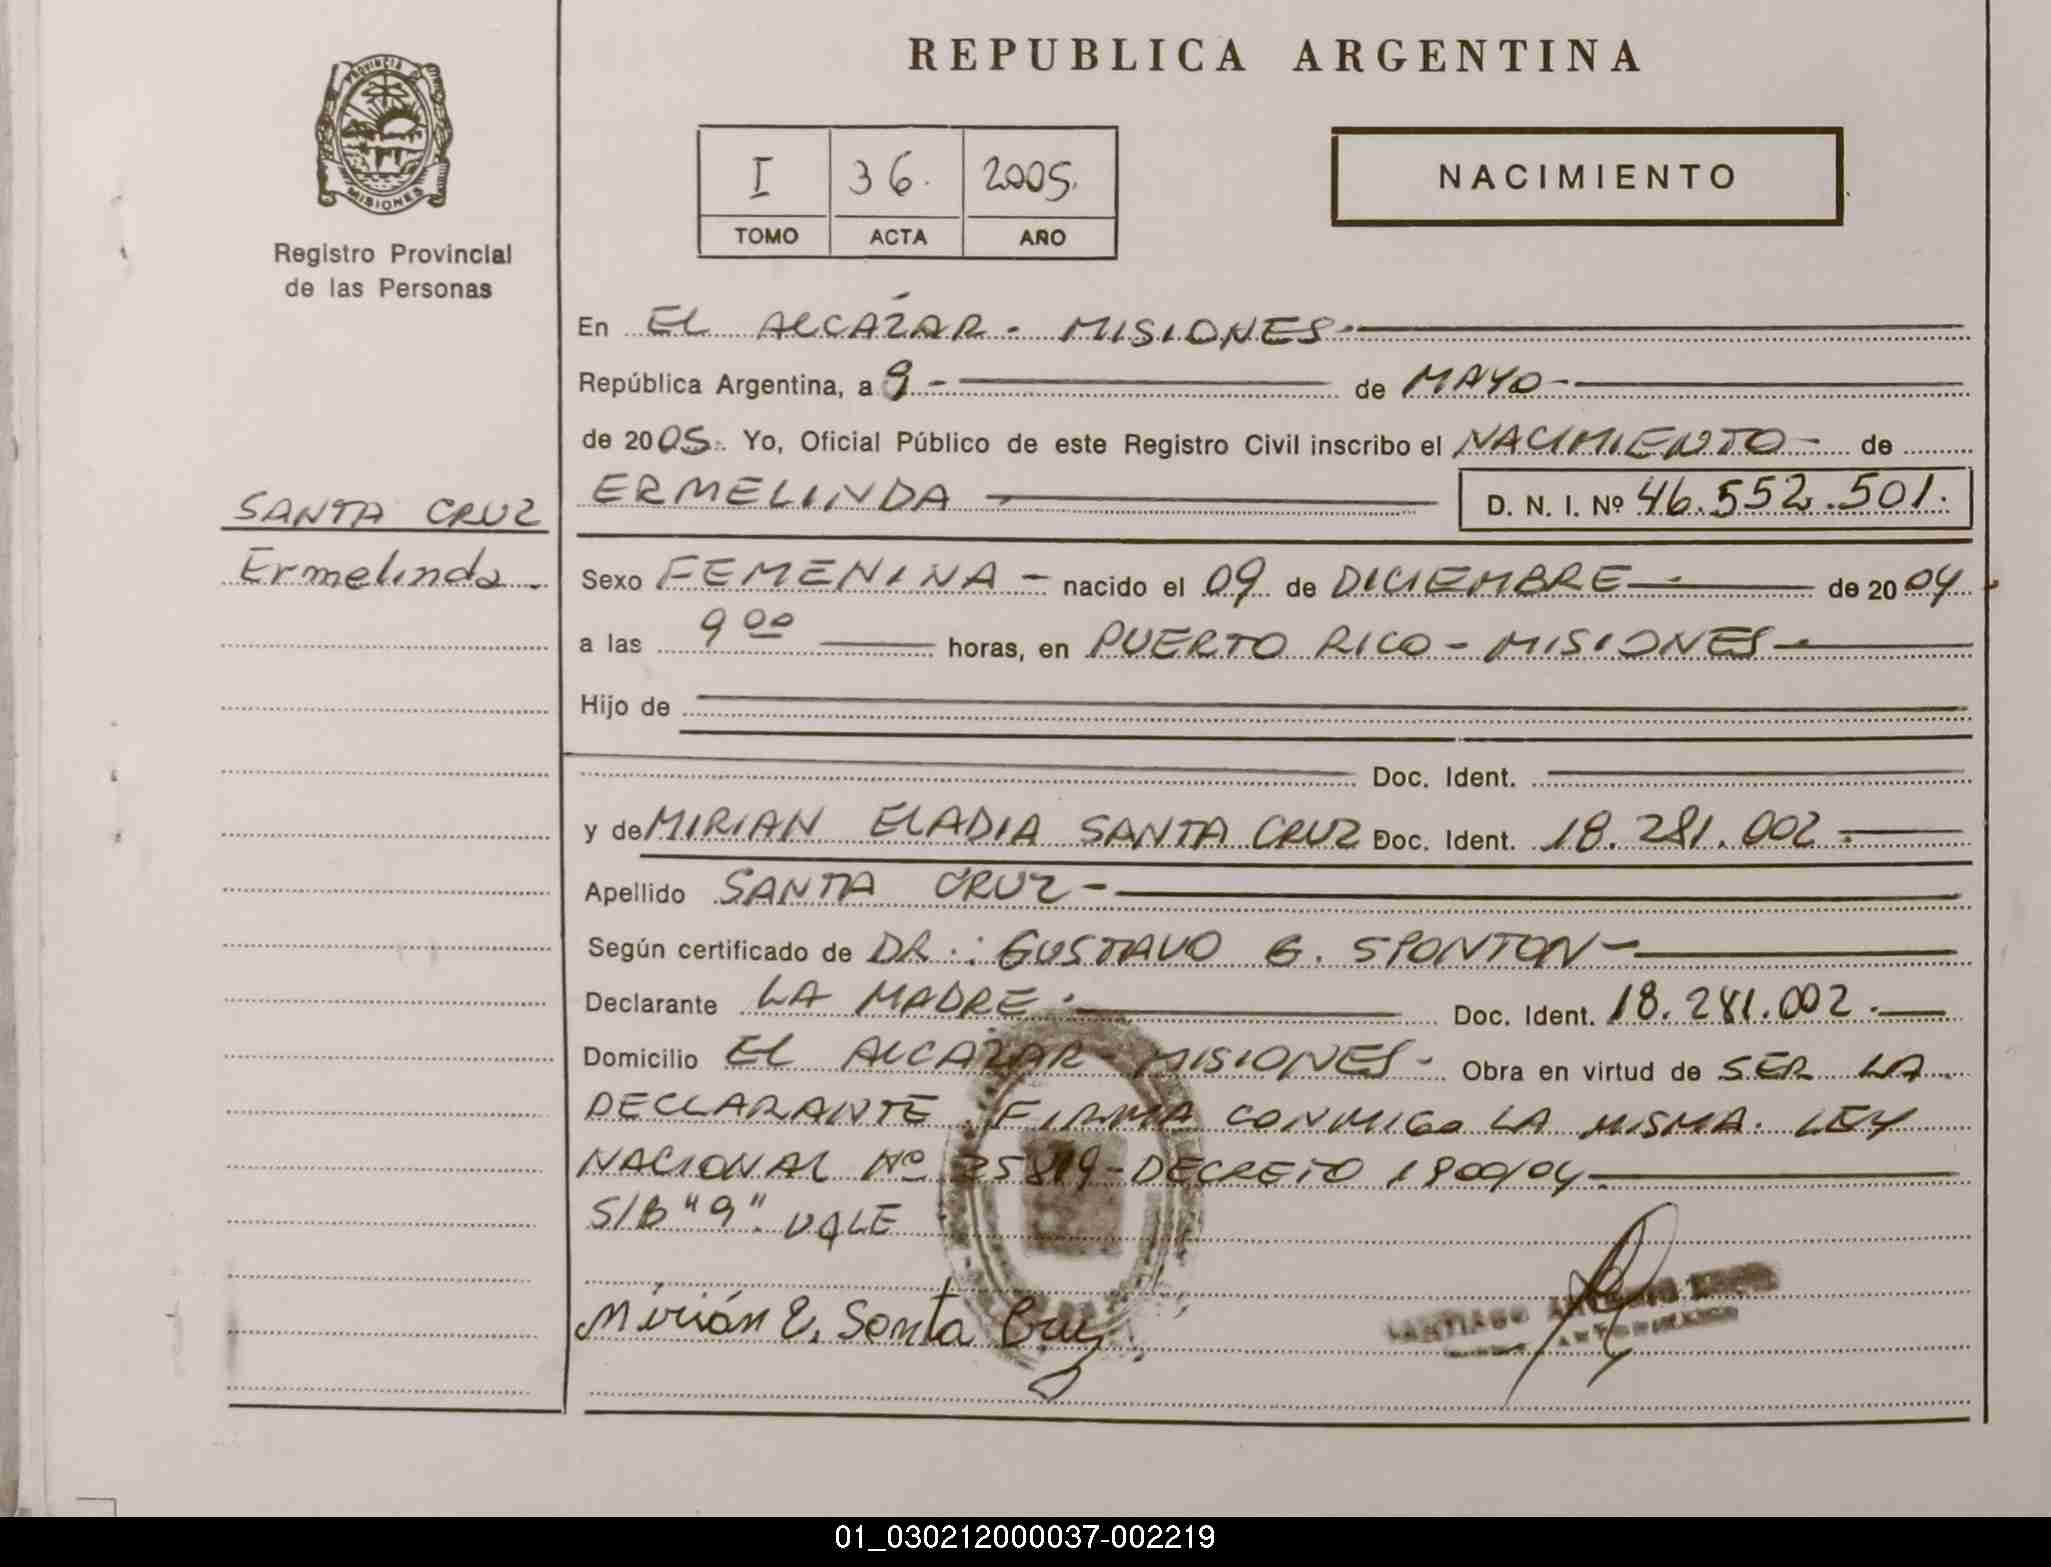 REPUBLICA ARGENTINA
PROVINCIA D
MISIONES
Registro Provincial
de las Personas
I 36. 2005.
TOMO ACTA AÑO
NACIMIENTO
En EL ALCAZAR - MISIONES -
República Argentina, a 9 - de MAYO -
de 2005. Yo, Oficial Público de este Registro Civil inscribo el NACIMIENTO - de
ERMELINDA - D. N. I. Nº 46.552.501.
SANTA CRUZ
Ermelinda -
Sexo FEMENINA - nacido el 09 de DICIEMBRE - de 2004
a las 9 00 horas, en PUERTO RICO - MISIONES -
Hijo de
Doc. Ident.
y de MIRIAN ELADIA SANTA CRUZ Doc. Ident. 18.281.002 -
Apellido SANTA CRUZ -
Según certificado de DR.: GUSTAVO G. SPONTON -
Declarante LA MADRE - Doc. Ident. 18.281.002 -
Domicilio EL ALCAZAR - MISIONES - Obra en virtud de SER LA
DECLARANTE. FIRMA CONMIGO LA MISMA. LEY
NACIONAL Nº 25819 - DECRETO 1900/04 -
S/B "9" VALE
Mirián E. Santa Cruz
SANTIAGO
01_030212000037-002219